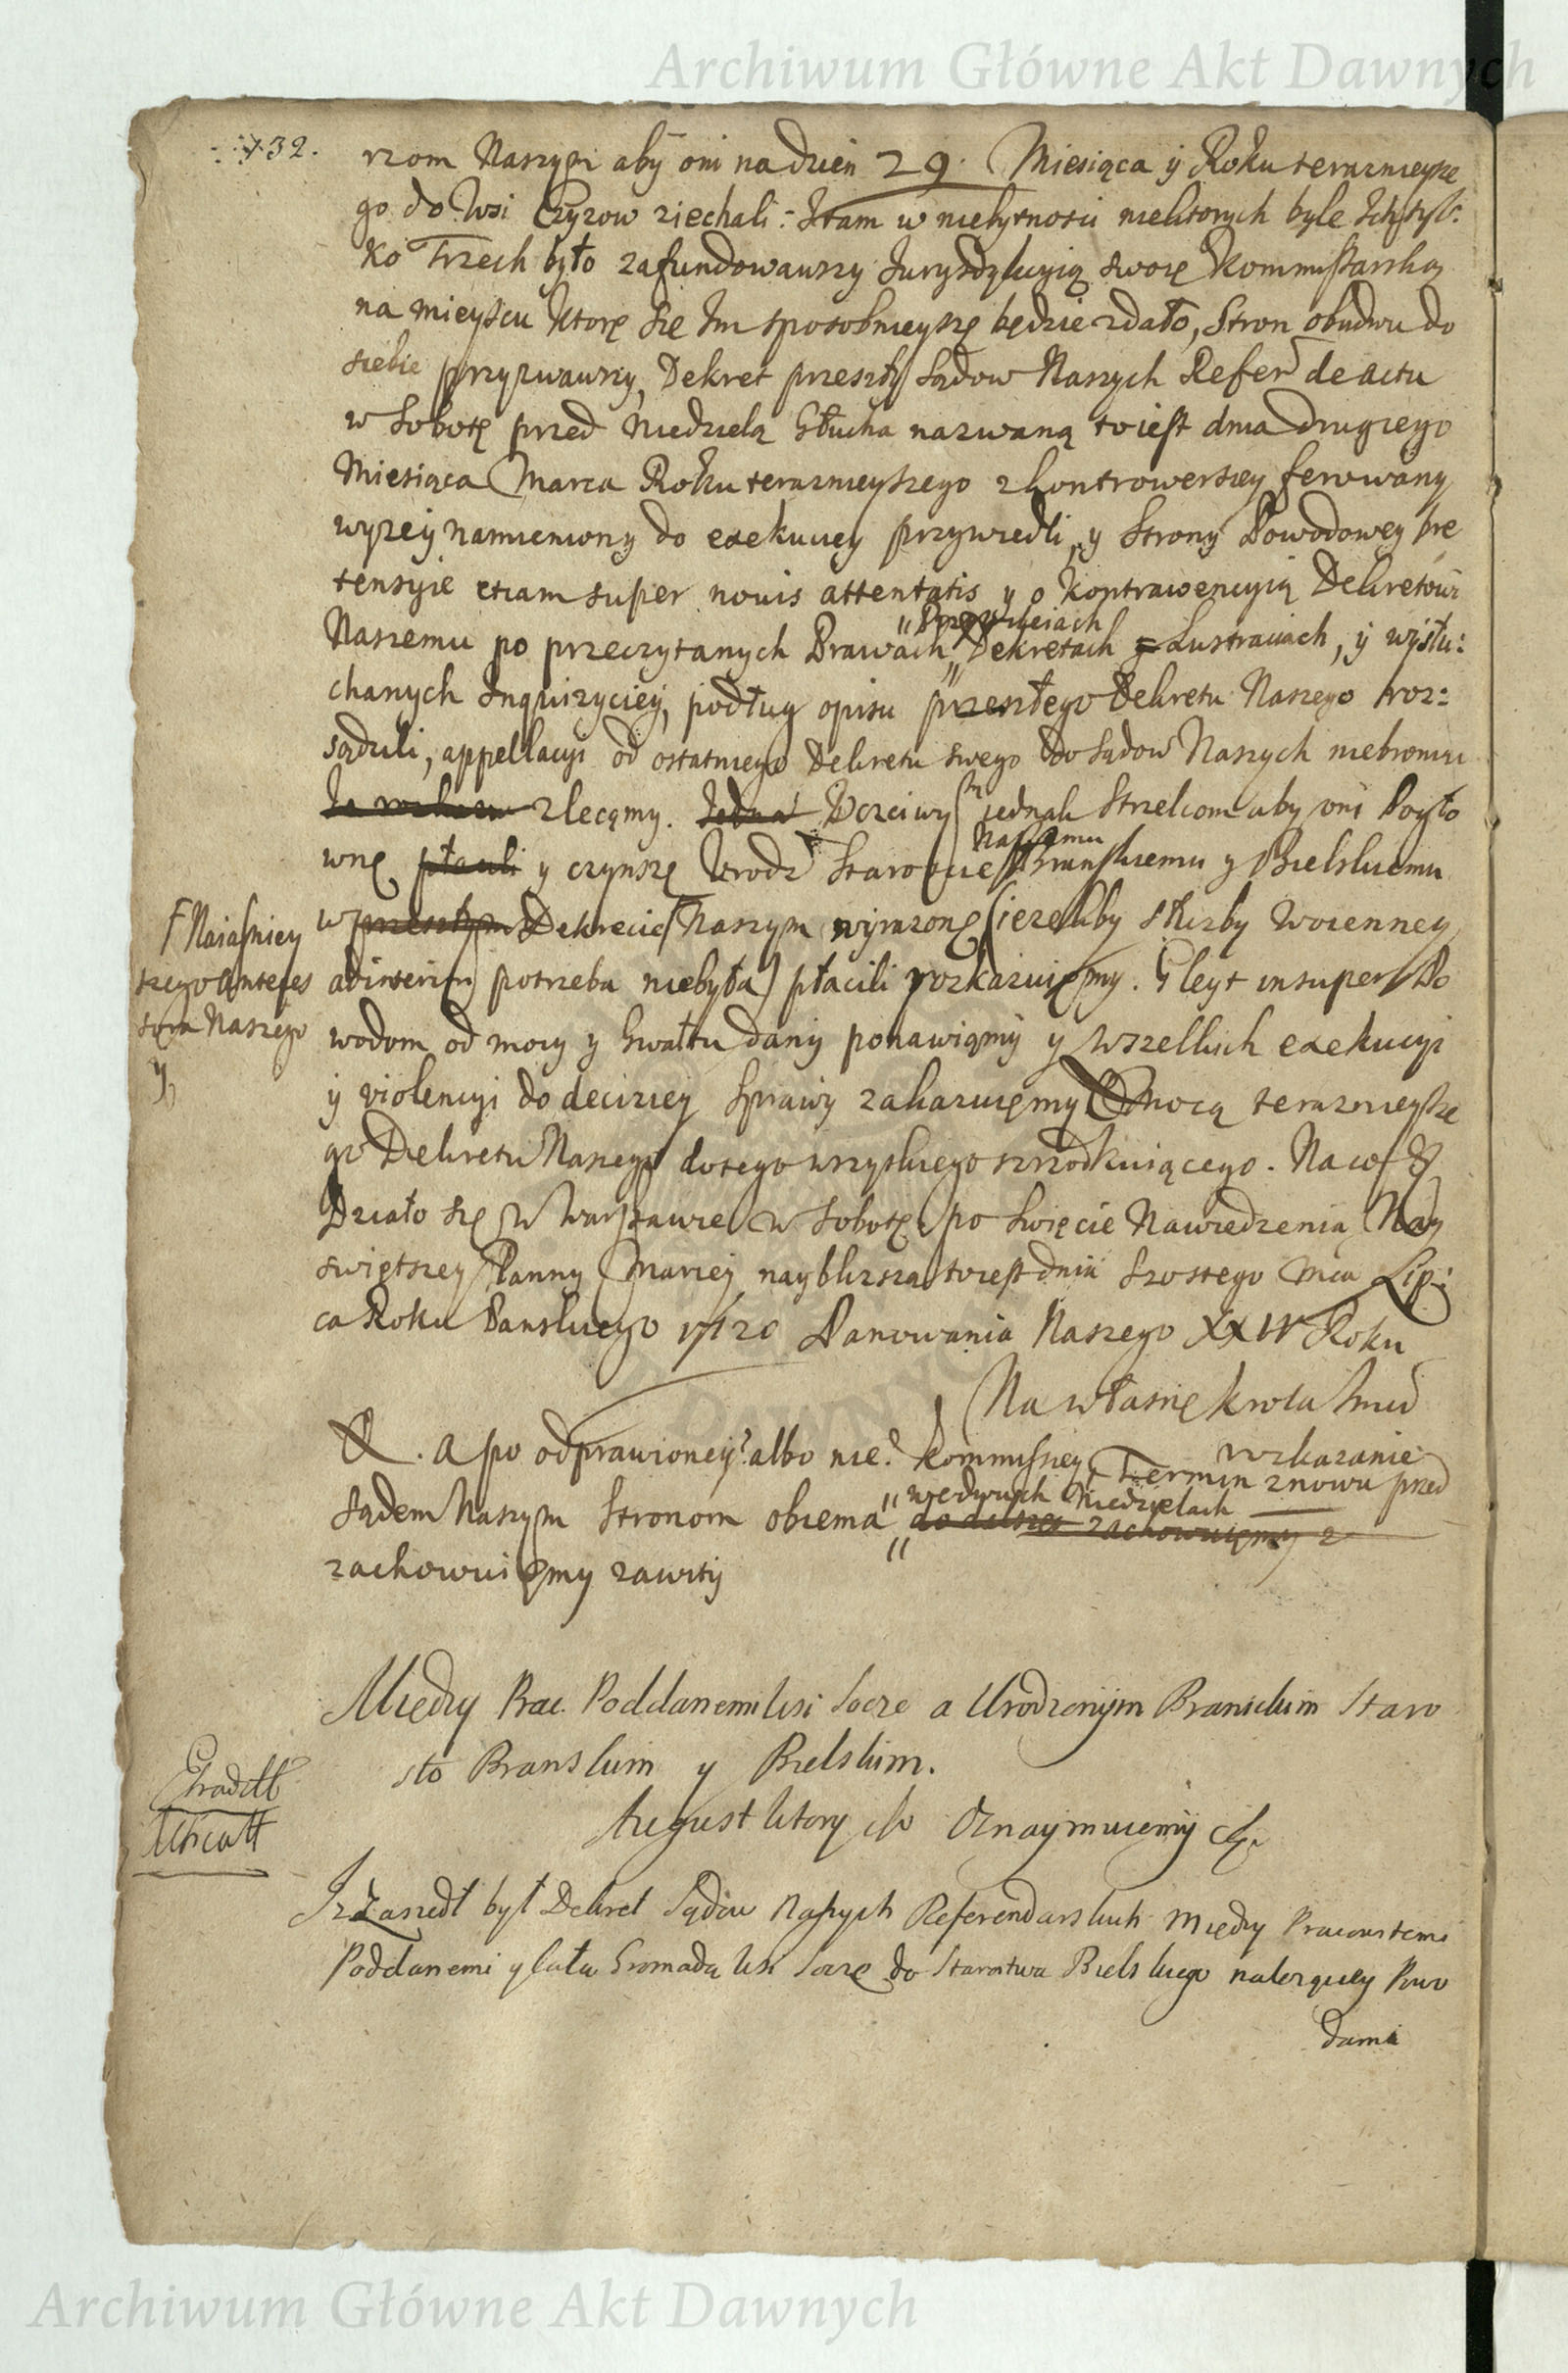 Archiwum Główne Akt Dawnych
732.
rzom Naszym aby oni na dzien 29. Miesiąca ÿ Roku terazniejsze
go do Wsi Czyzow ziechali: Itam w niebytnosci niektorych byle Ich tyl:
ko Trzech było zafundowawszy Jurysdykcyią swoię Kommissarską
na mieyscu ktorę się Im sposobnieyszę będzie zdało, Stron obudwu do
siebie przyzwawszy, Dekret przeszły Sądow Naszych Refer de actu
w Sobotę przed Niedzielą Głucha nazwaną toiest dnia drugiego
Miesiąca Marca Roku terazniejszego z kontrowersiey ferowany
wyzeÿ namieniony do exekucyey przywiedli, y Strony Powodowey pre
tensyie etiam super nouis attentatis y o kontrawencyią Dekretowi
"Przywileiach
Naszemu po przeczytanych Prawach Dekretach y Lustraciach, ÿ wysłu:
chanych Inquizyciey, podług opisu przeszłego Dekretu Naszego roz:
sądzili, appellacyi od ostatniego Dekretu swego do Sądow Naszych niebroniu
zlecąmy. Jedna Uczciwy jednak Strzelcom aby oni Pogło
Naszemu
wnę płacili y czynszę Urodz Staroscie Branskiemu y Bielskiemu
w przeszłym Dekrecie Naszym wyrazonę (iezeliby słuzby Woienney
f Naiasniey
szego Anteces
sora Naszego
y
adinterim potrzeba niebyła) płacili rozkazuięmy. Gleyt insuper Po
wodom od mocy y Gwałtu dany ponawiąmy y wszelkich exekucyi
ÿ violencyi do decizyey Sprawy zakazuięmy Mocą terazniejsze
go Dekretu Naszego do tego wszystkiego szrodkuiącego. Na co
Działo się W Warszawie w Sobotę po Swięcie Nawiedzenia Nay
swiętszey Panny Mariey naybliszszą toiest dnia Szostego Mca Lip:
ca Roku Panskiego 1720 Panowania Naszego XXIV Roku
Na własnę krola Jmci
wzkazanie
. a po odprawioneÿ? albo nie? kommissiey Termin znowu przed
wedwuch Niedzielach
Sądem Naszym Stronom obiema do dalszey zachowuięmy
zachowuięmy zawity
Między Prac. Poddanemi Wsi Socze a Urodzonÿm Branickim Staro
sto Branskim y Bielskim.
August ktory Oznaymuiemÿ
Iz Zaszedł był Dekret Sądow Naszych Referendarskich Między Pracowitemi
Poddanemi y całą Gromadą Wsi Soczę do Starostwa Bielskiego nalezącey Powo
dami
Archiwum Główne Akt Dawnych